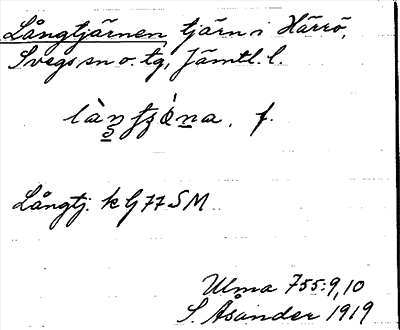 Långtjärnen, tjärn i Härrö,
Svegs sn o. tg, Jämtl. l.
f.
Långtj. k G 77 SM
Ulma 755:9,10
S. Åsander 1919